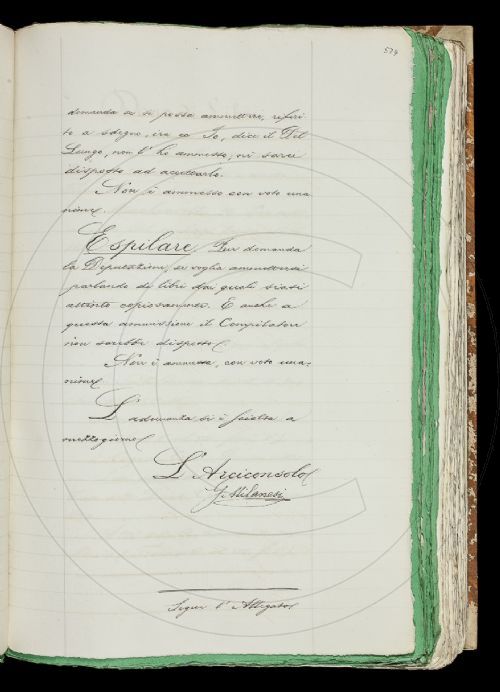 574
demanda se si possa ammettere, riferi
to a sdegno, ira ec Io, dice il Del
Lungo, non l'ho ammesso, nè sarei
disposto ad accettarlo.
Non è ammesso con voto una
nime.
Espilare. Pur domanda
la Deputazione, se voglia ammettersi
parlando di libri dai quali siasi
attinto copiosamente. E anche a
questa ammissione il Compilatore
non sarebbe disposto.
Non è ammessa, con voto una-
nime.
L'adunanza si è sciolta a
mezzogiorno.
L'Arciconsolo
G. Milanesi
Segue l'Allegato